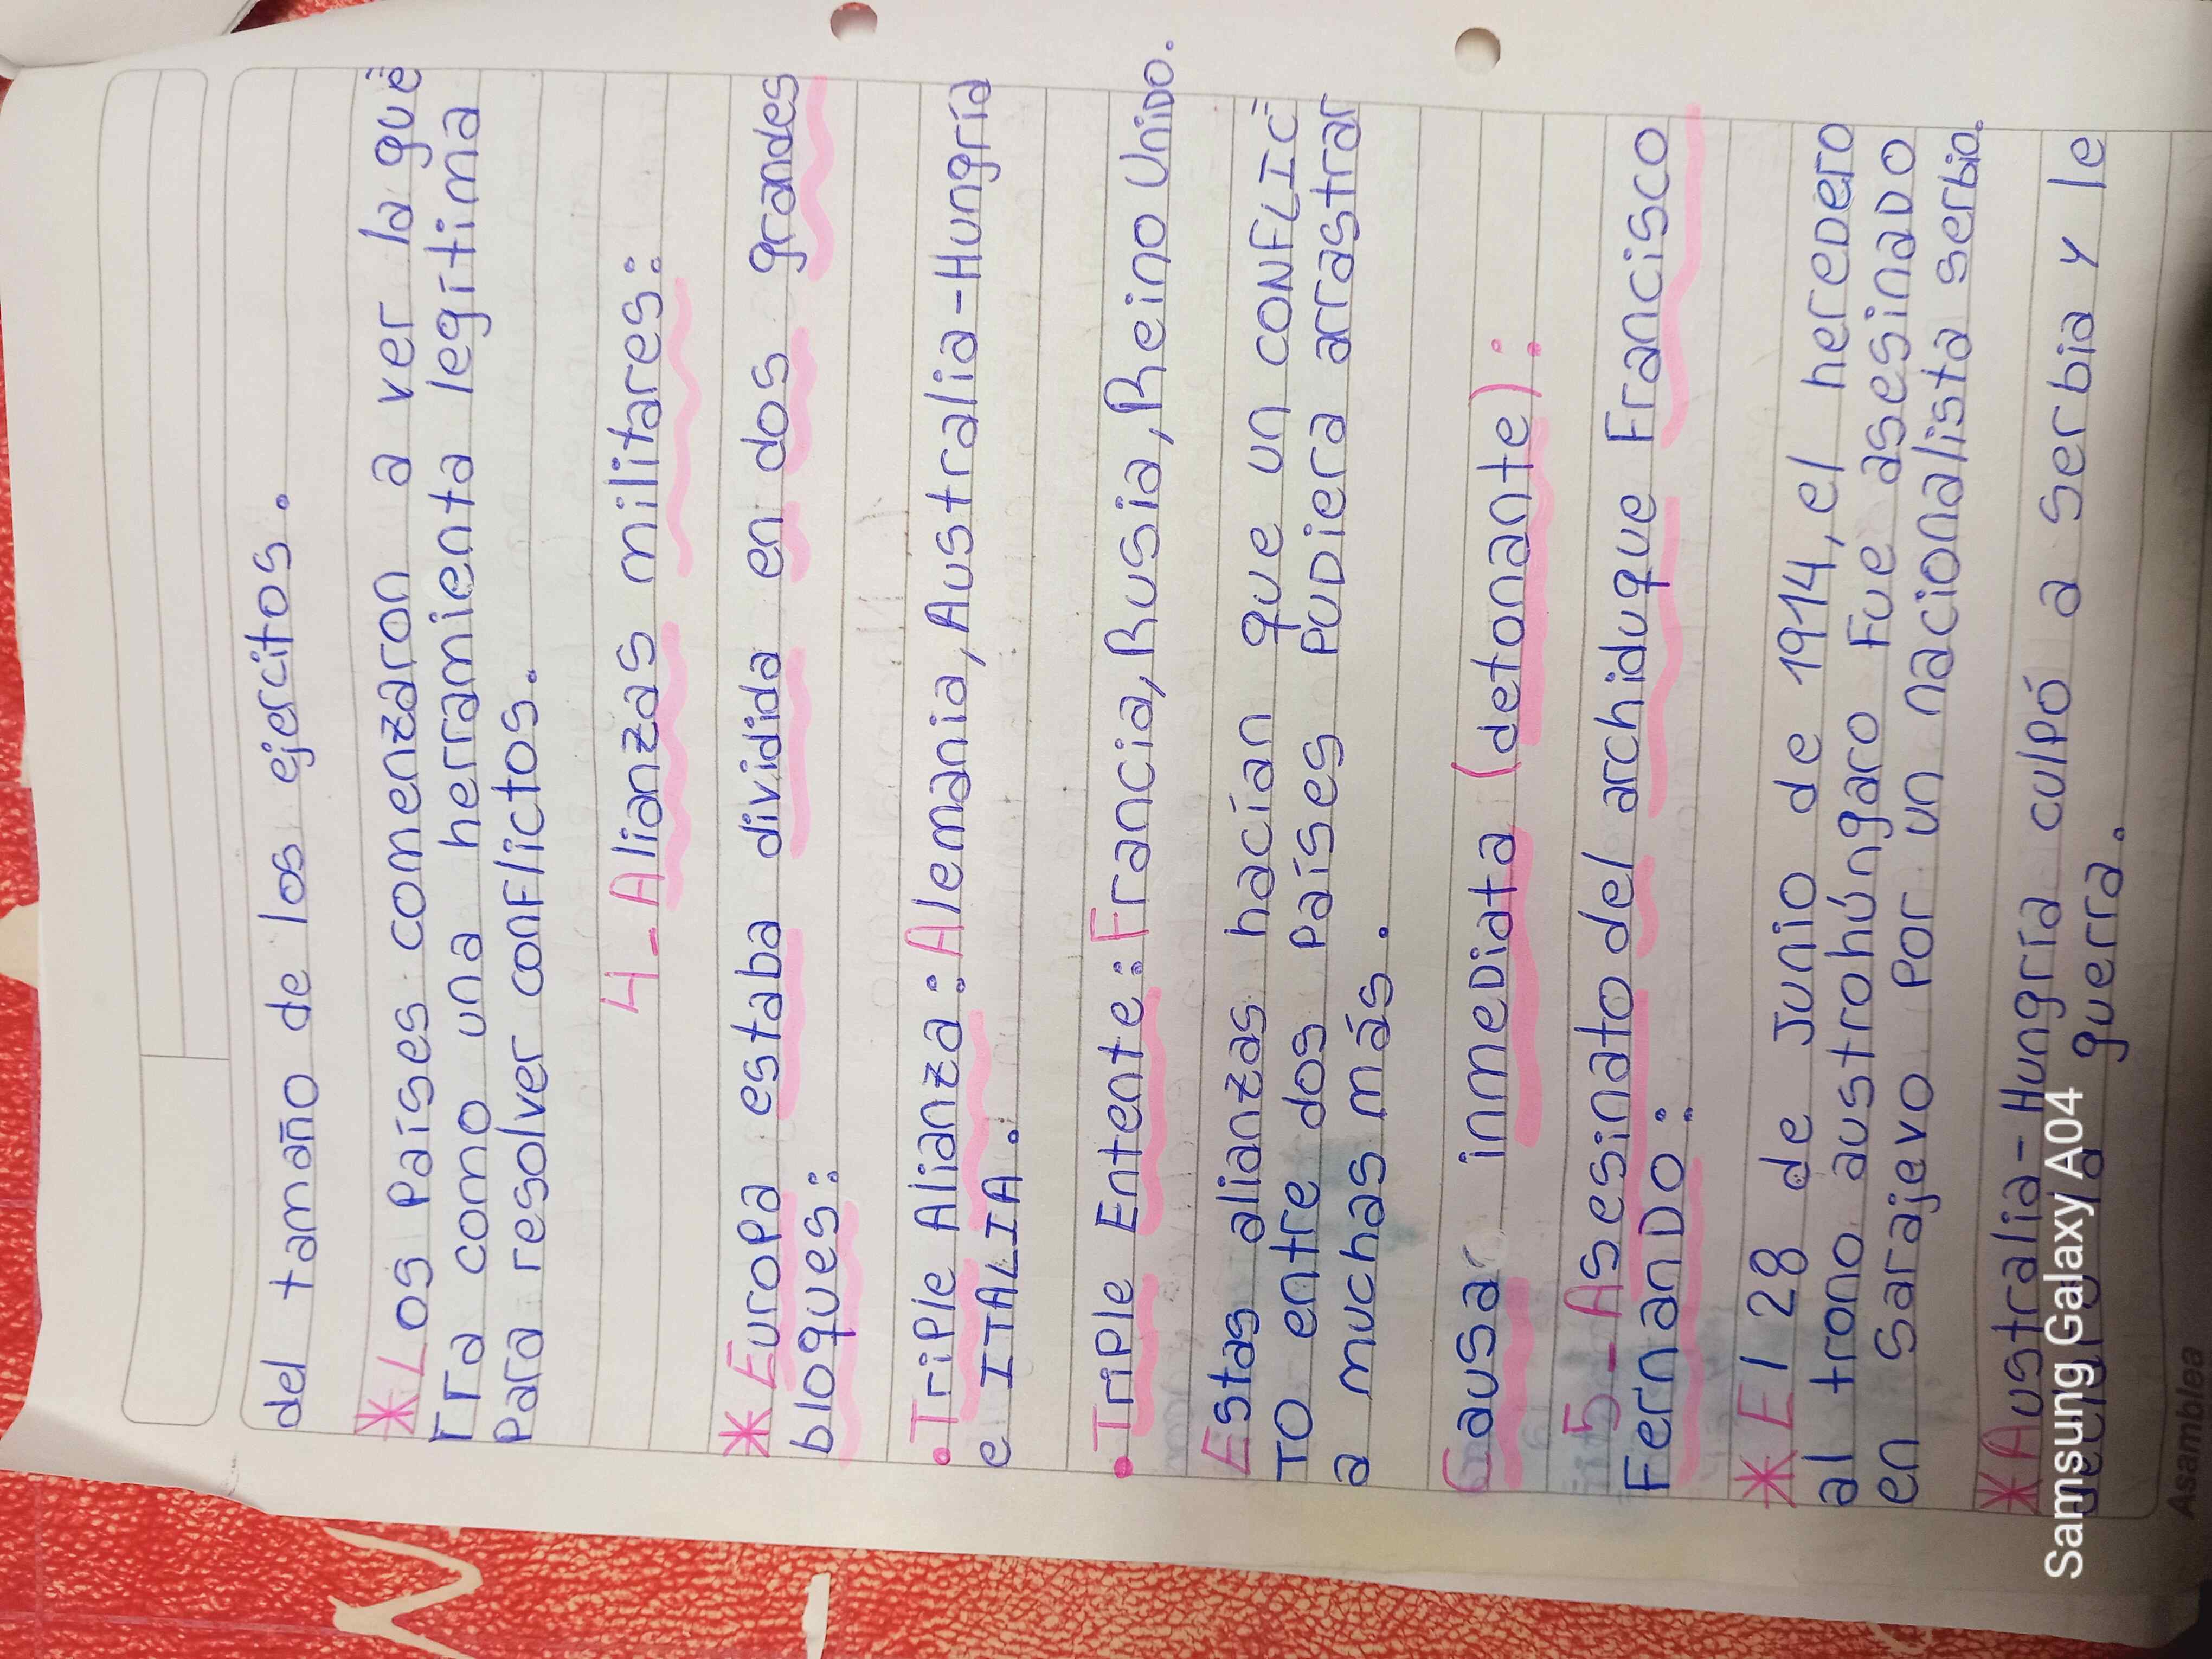 del tamaño de los ejercitos.
* Los Países comenzaron a ver la gue=
rra como una herramienta legítima
Para resolver conflictos.
4- Alianzas militares:
* Europa estaba dividida en dos grandes
bloques:
• Triple Alianza: Alemania, Australia-Hungría
e ITALIA.
• Triple Entente: Francia, Rusia, Reino Unido.
Estas alianzas hacían que un CONFLIC=
TO entre dos países PUDiera arrastrar
a muchas más.
Causa inmeDiata (detonante):
5- Asesinato del archiduque Francisco
FernanDO:
* El 28 de Junio de 1914, el hereDero
al trono austrohúngaro Fue asesinaDO
en Sarajevo Por un nacionalista serbia.
* Australia-Hungría culpó a Serbia y le
guerra.
Samsung Galaxy A04
Asamblea